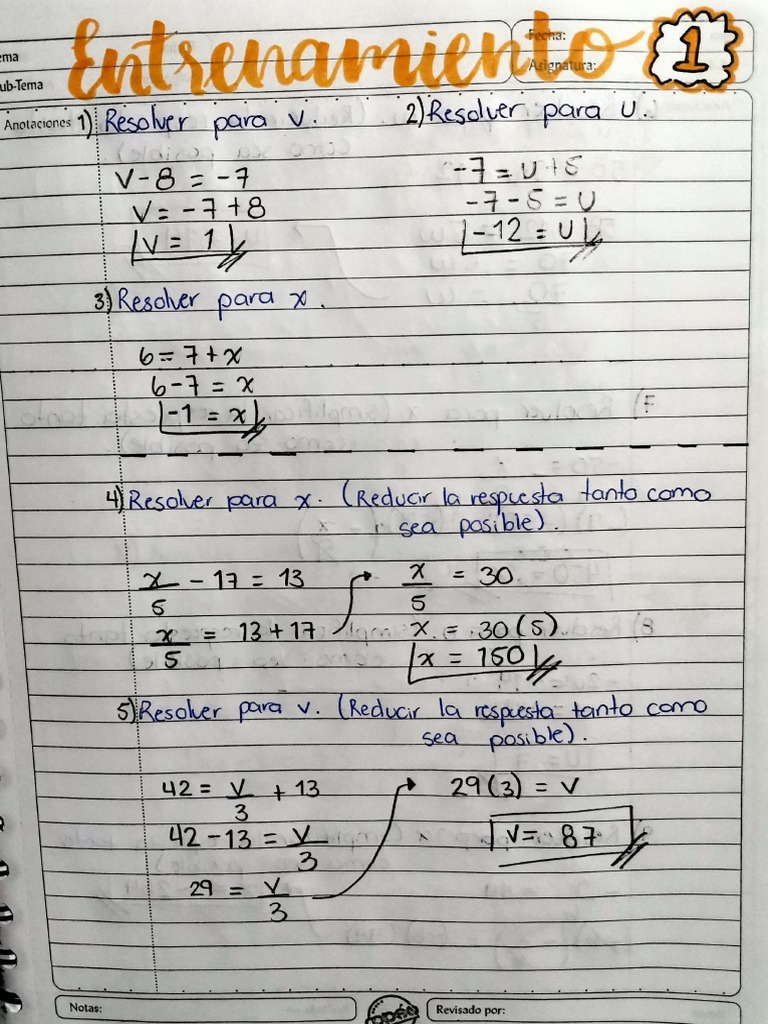 Entrenamiento 1
ema
Fecha:
ub-Tema
Asignatura:
Anotaciones
1) Resolver para v.
v - 8 = -7
v = -7 + 8
v = 1
2) Resolver para u.
-7 = u + 5
-7 - 5 = u
-12 = u
3) Resolver para x.
6 = 7 + x
6 - 7 = x
-1 = x
4) Resolver para x. (Reducir la respuesta tanto como
sea posible).
x/5 - 17 = 13
x/5 = 13 + 17
x/5 = 30
x = 30(5)
x = 150
5) Resolver para v. (Reducir la respuesta tanto como
sea posible).
42 = v/3 + 13
42 - 13 = v/3
29 = v/3
29(3) = v
v = 87
Notas:
Revisado por: